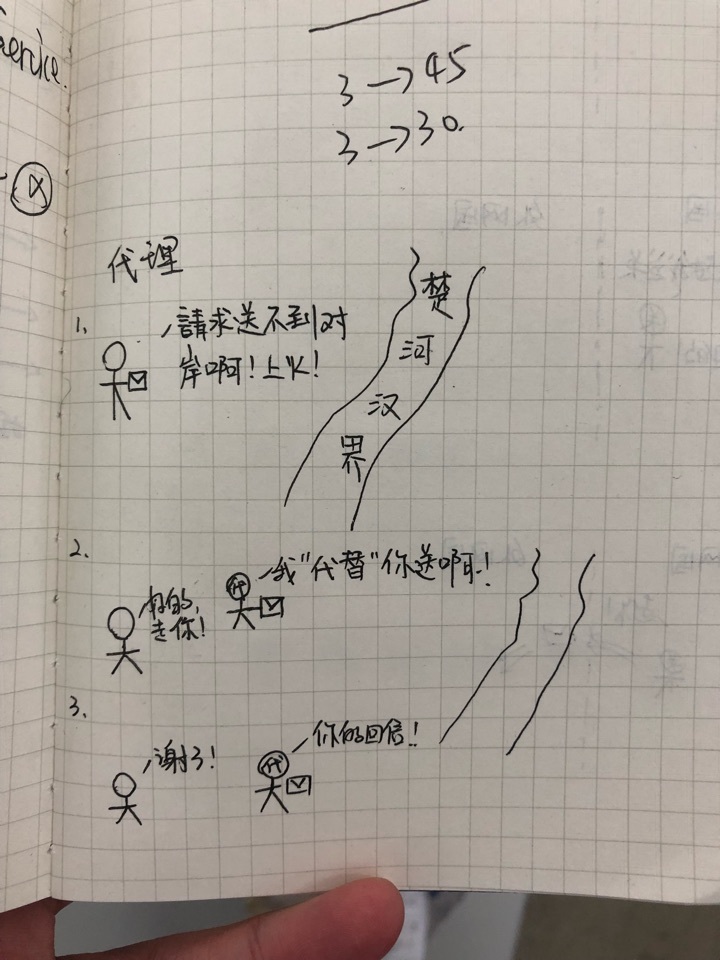 3→45
3→30.
代理
1.
請求送不到对
岸啊!上火!
楚
河
汉
界
2.
好的,
走你!
代
我"代替"你送啊!
3.
謝了!
代
你的回信!